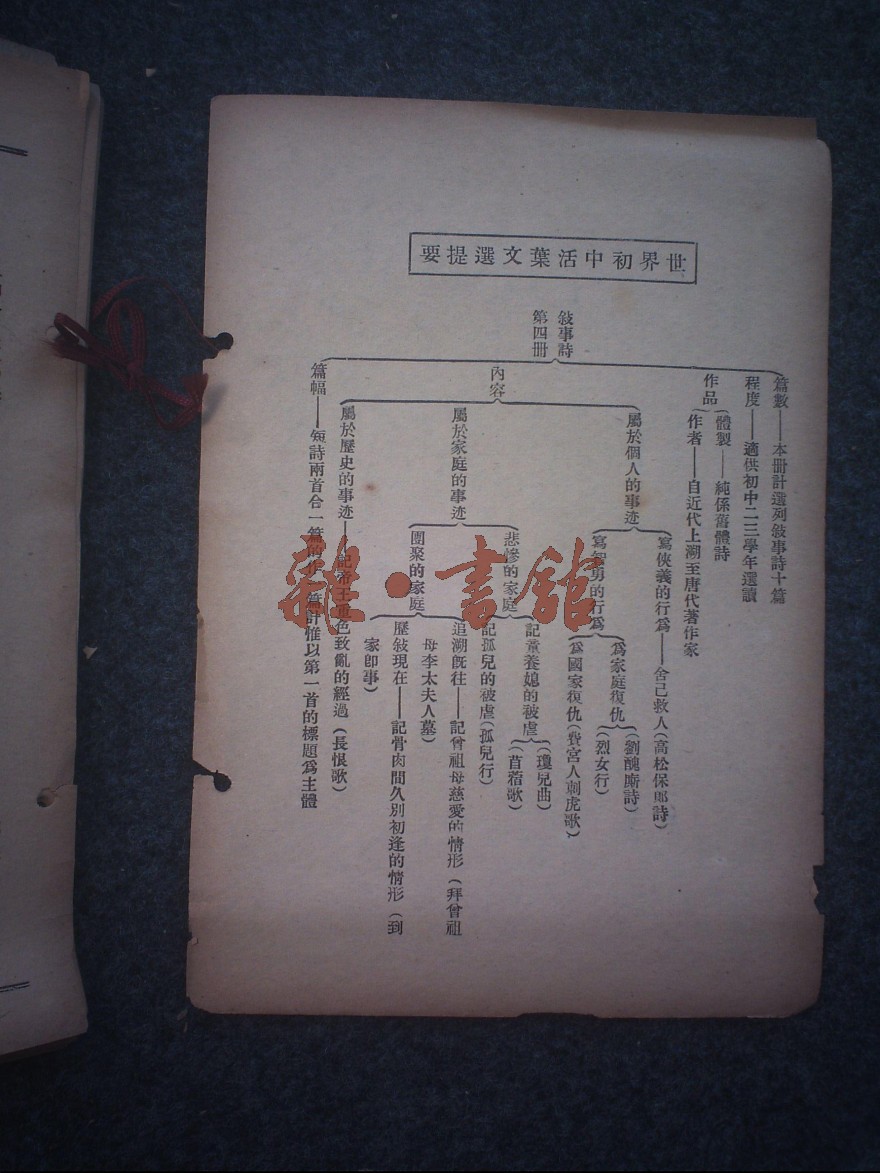 世界初中活葉文選提要
敍事詩
第四册
篇數——本册計選列敍事詩十篇
程度——適供初中二三學年選讀
作品
體製——純係舊體詩
作者——自近代上溯至唐代著作家
內容
屬於個人的事迹
寫俠義的行爲——舍己救人（高松保郎詩）
寫智勇的行爲
爲家庭復仇
（劉醜廝詩）
（烈女行）
爲國家復仇（費宮人刺虎歌）
屬於家庭的事迹
悲慘的家庭
記童養媳的被虐
（瓊兒曲）
（苜蓿歌）
記孤兒的被虐（孤兒行）
團聚的家庭
追溯旣往——記曾祖母慈愛的情形（拜曾祖
母李太夫人墓）
歷敍現在——記骨肉間久別初逢的情形（到
家卽事）
屬於歷史的事迹——記帝王重色致亂的經過（長恨歌）
篇幅——短詩兩首合一篇的作一篇計惟以第一首的標題爲主體
雜·書舘